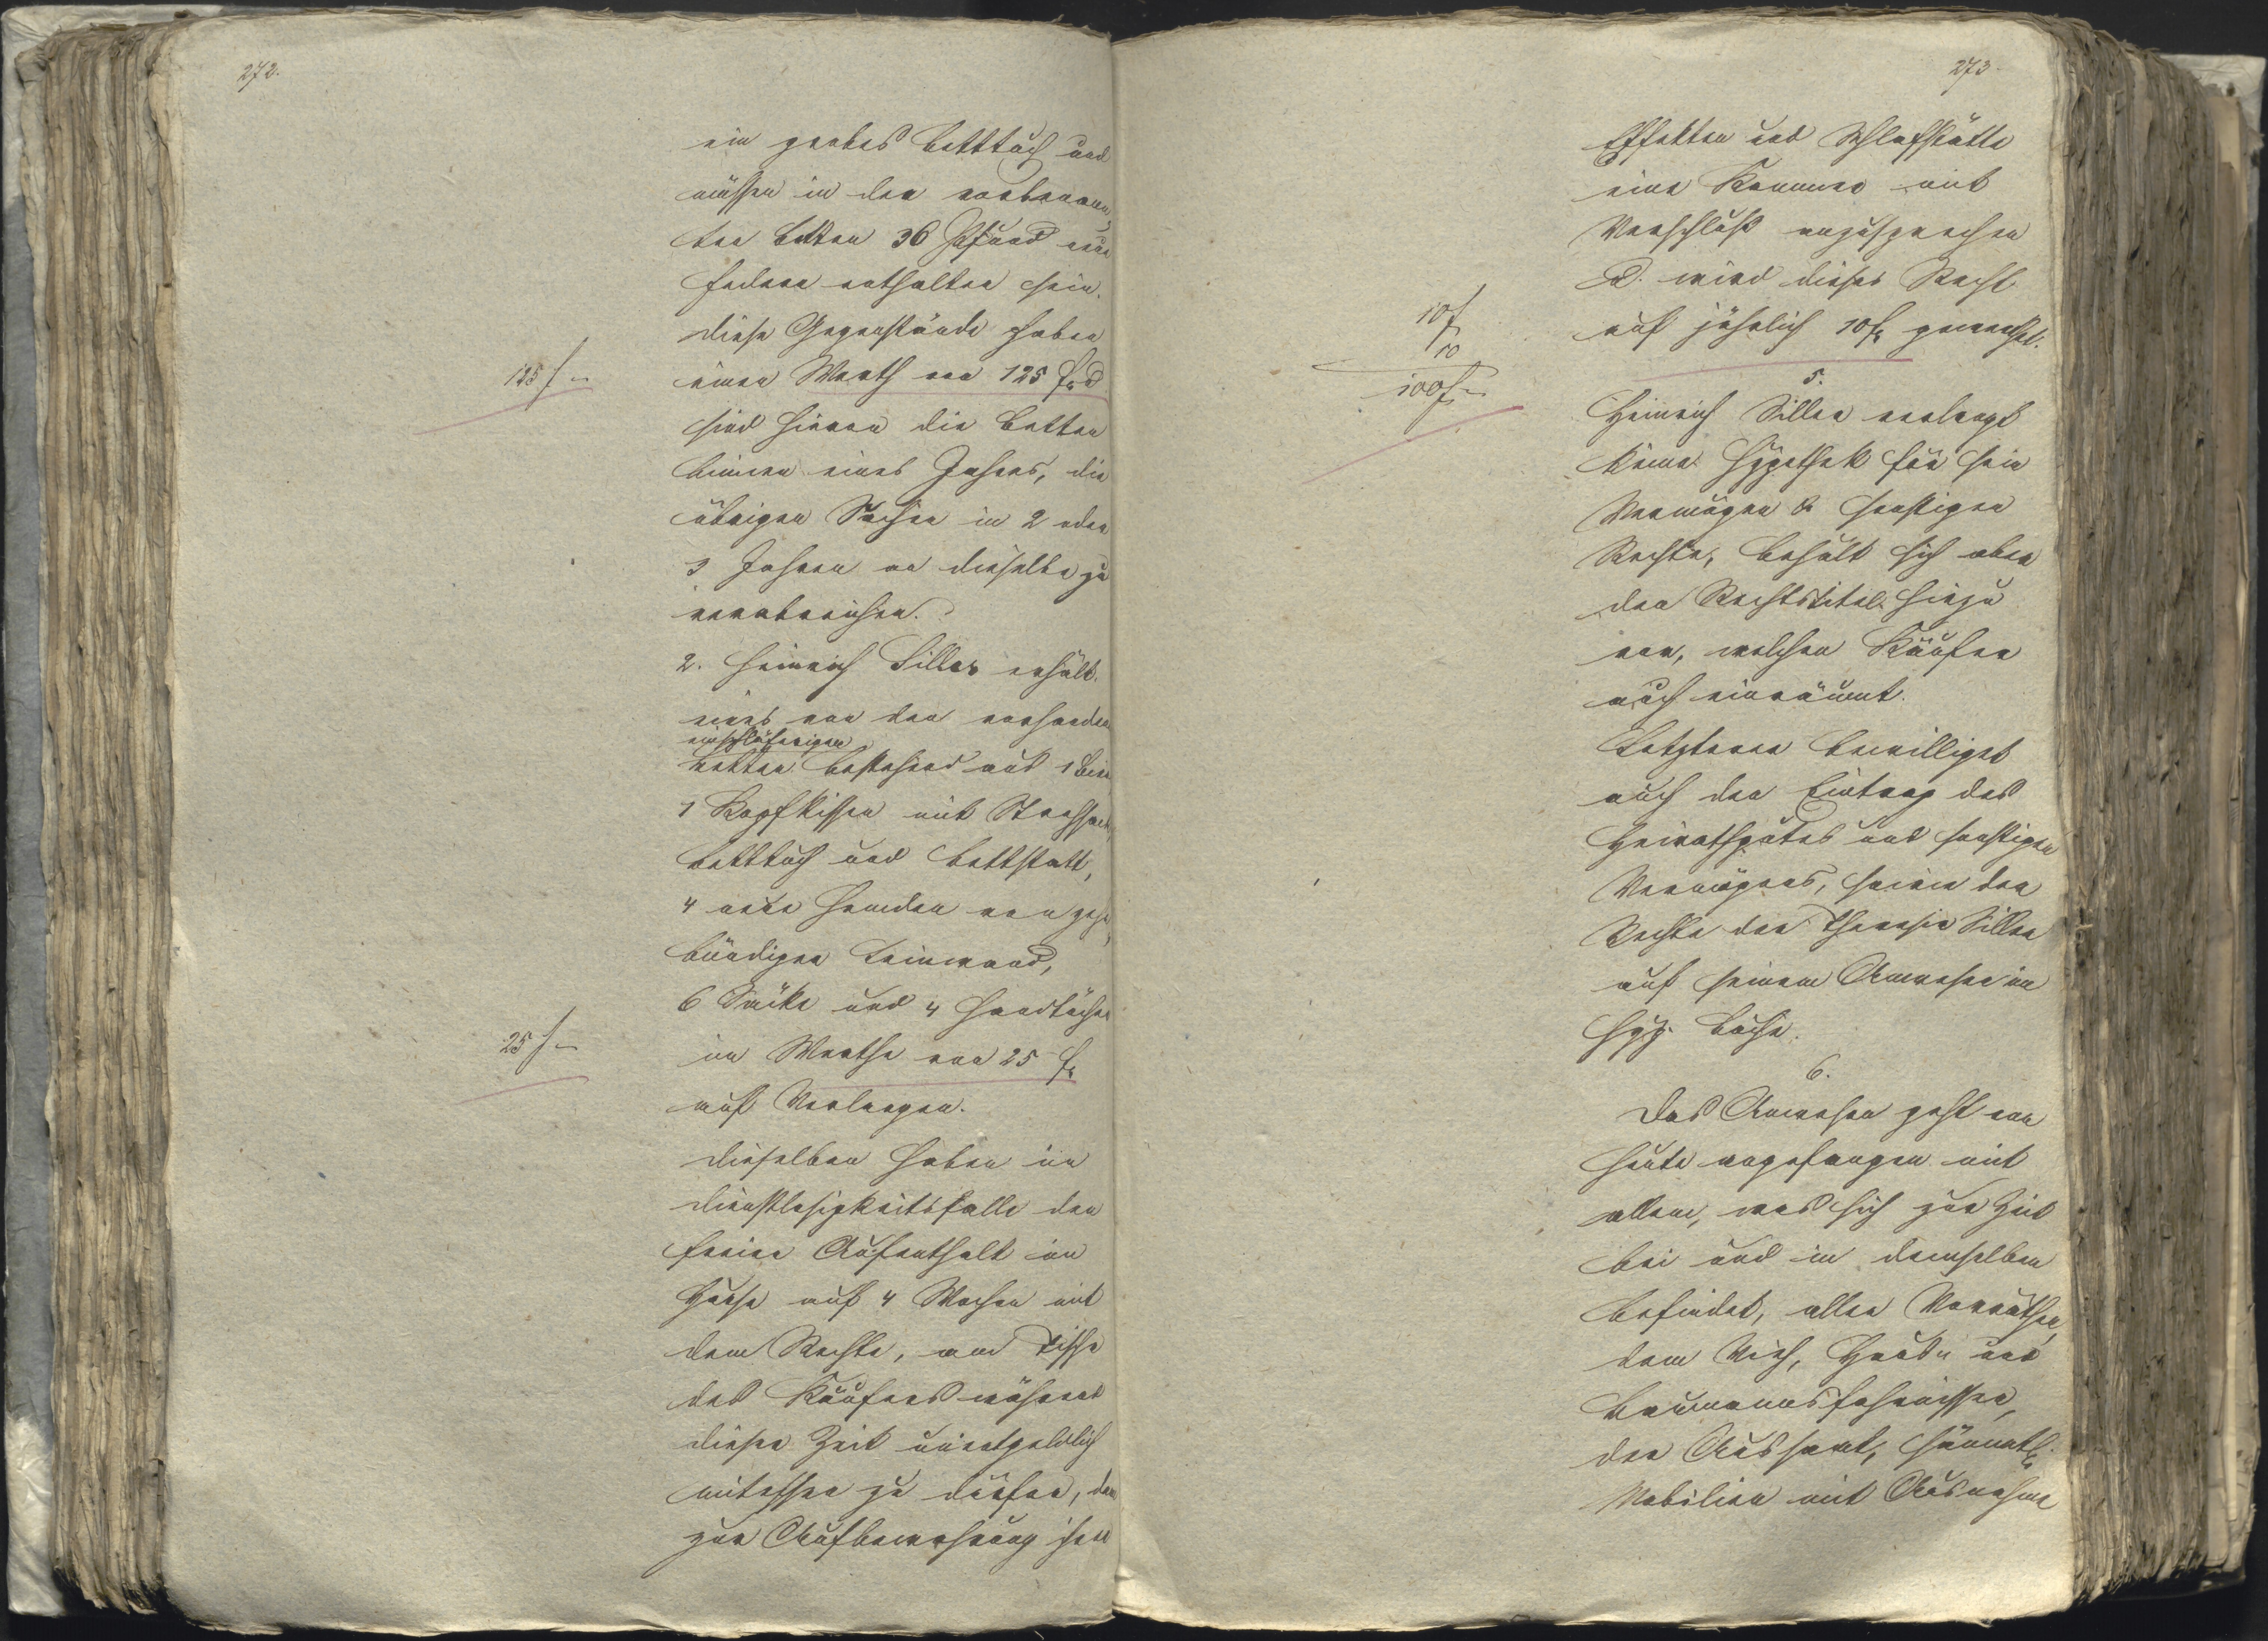 272.
ein grobes Betttuch und
müssen in den vorbenann
ten Betten 36 Pfund neue
Federn enthalten sein.
Diese Gegenstände haben
125 f –
einen Werth von 125 f. &
sind hievon die Betten
binnen eines Jahres, die
übrigen Sachen in 2 oder
3 Jahren an dieselbe zu
verabreichen.
2. Heinrich Siller erhält
eines von den vorhanden
einschläferigen
Betten bestehend aus 1
1 Kopfkissen mit Strohsack,
Betttuch und Bettstatt,
4 neue Hemden von
bündigen Leinwand,
6 Säcke und 4 Handtücher
25 f –
im Werthe von 25 f.
auf Verlangen.
Dieselben haben im
Dienstlosigkeitsfalle den
freien Aufenthalt im
Hause auf 4 Wochen mit
dem Rechte, am Tische
des Käufers während
dieser Zeit unentgeldlich
mitessen zu dürfen, dann
zur Aufbewahrung ihrer
273.
Effekten und Schlafstätte
eine Kammer mit
Verschluß anzusprechen
& wird dieses Recht
10 f
10
100 f –
auf jährlich 10 f. gewerthet.
5.
Heinrich Siller verlangt
keine Hypothek für sein
Vermögen & sonstigen
Rechte, behält sich aber
den Rechtstitel hiezu
vor, welchen Käufer
auch einräumt.
Letzterer bewilliget
auch den Eintrag des
Heirathgutes und sonstigen
Vermögens, sowie der
Rechte der Theresia Siller
auf seinem Anwesen im
Hyp. Buche.
6.
Das Anwesen geht von
heute angefangen mit
allem, was sich zur Zeit
bei und in demselben
befindet, allen Vorräthen,
dem Vieh, Haus u und
Baumannsfahrnissen,
der Aussaat, sämmtl.
Mobilien mit Ausnahme